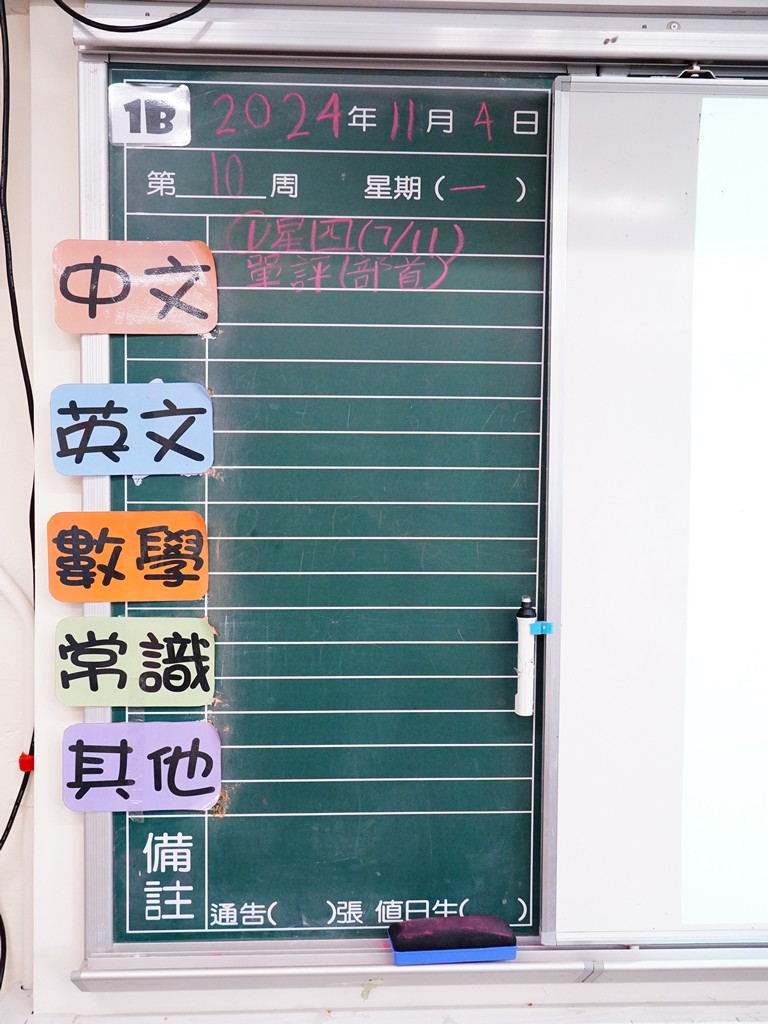 1B 2024年11月4日
第10周 星期(一)
①星四(7/11)
單評(部首)
中文
英文
數學
常識
其他
備註
通告( )張 值日生( )